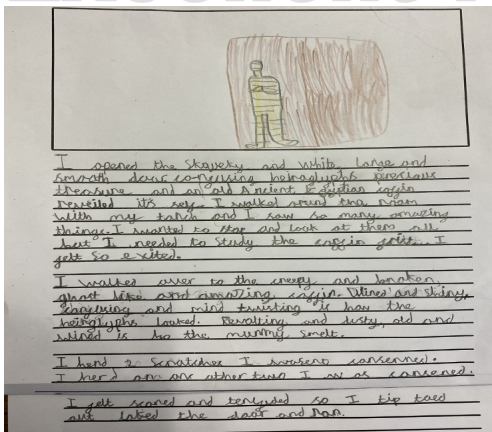 I opened the Squery and white, large and
smooth door confusing heiroglyphs precious
threasure and an old Ancient Egyptian coffin
reveiled it's self. I walked around the room
with my torch and I saw so many amazing
things. I wanted to stop and look at them all
but I needed to study the coffin first. I
felt so exited.
I walked over to the creepy and broken
ghost like and amazing coffin. and shiny,
confusing and mind twisting is how the
heiroglyphs looked. Revolting and dusty, old and
is ho the mummy smelt.
I herd 2 scratches I wasent consenned.
I herd an other two I was consened.
I felt scared and so I tip toed
out loked the door and ran.